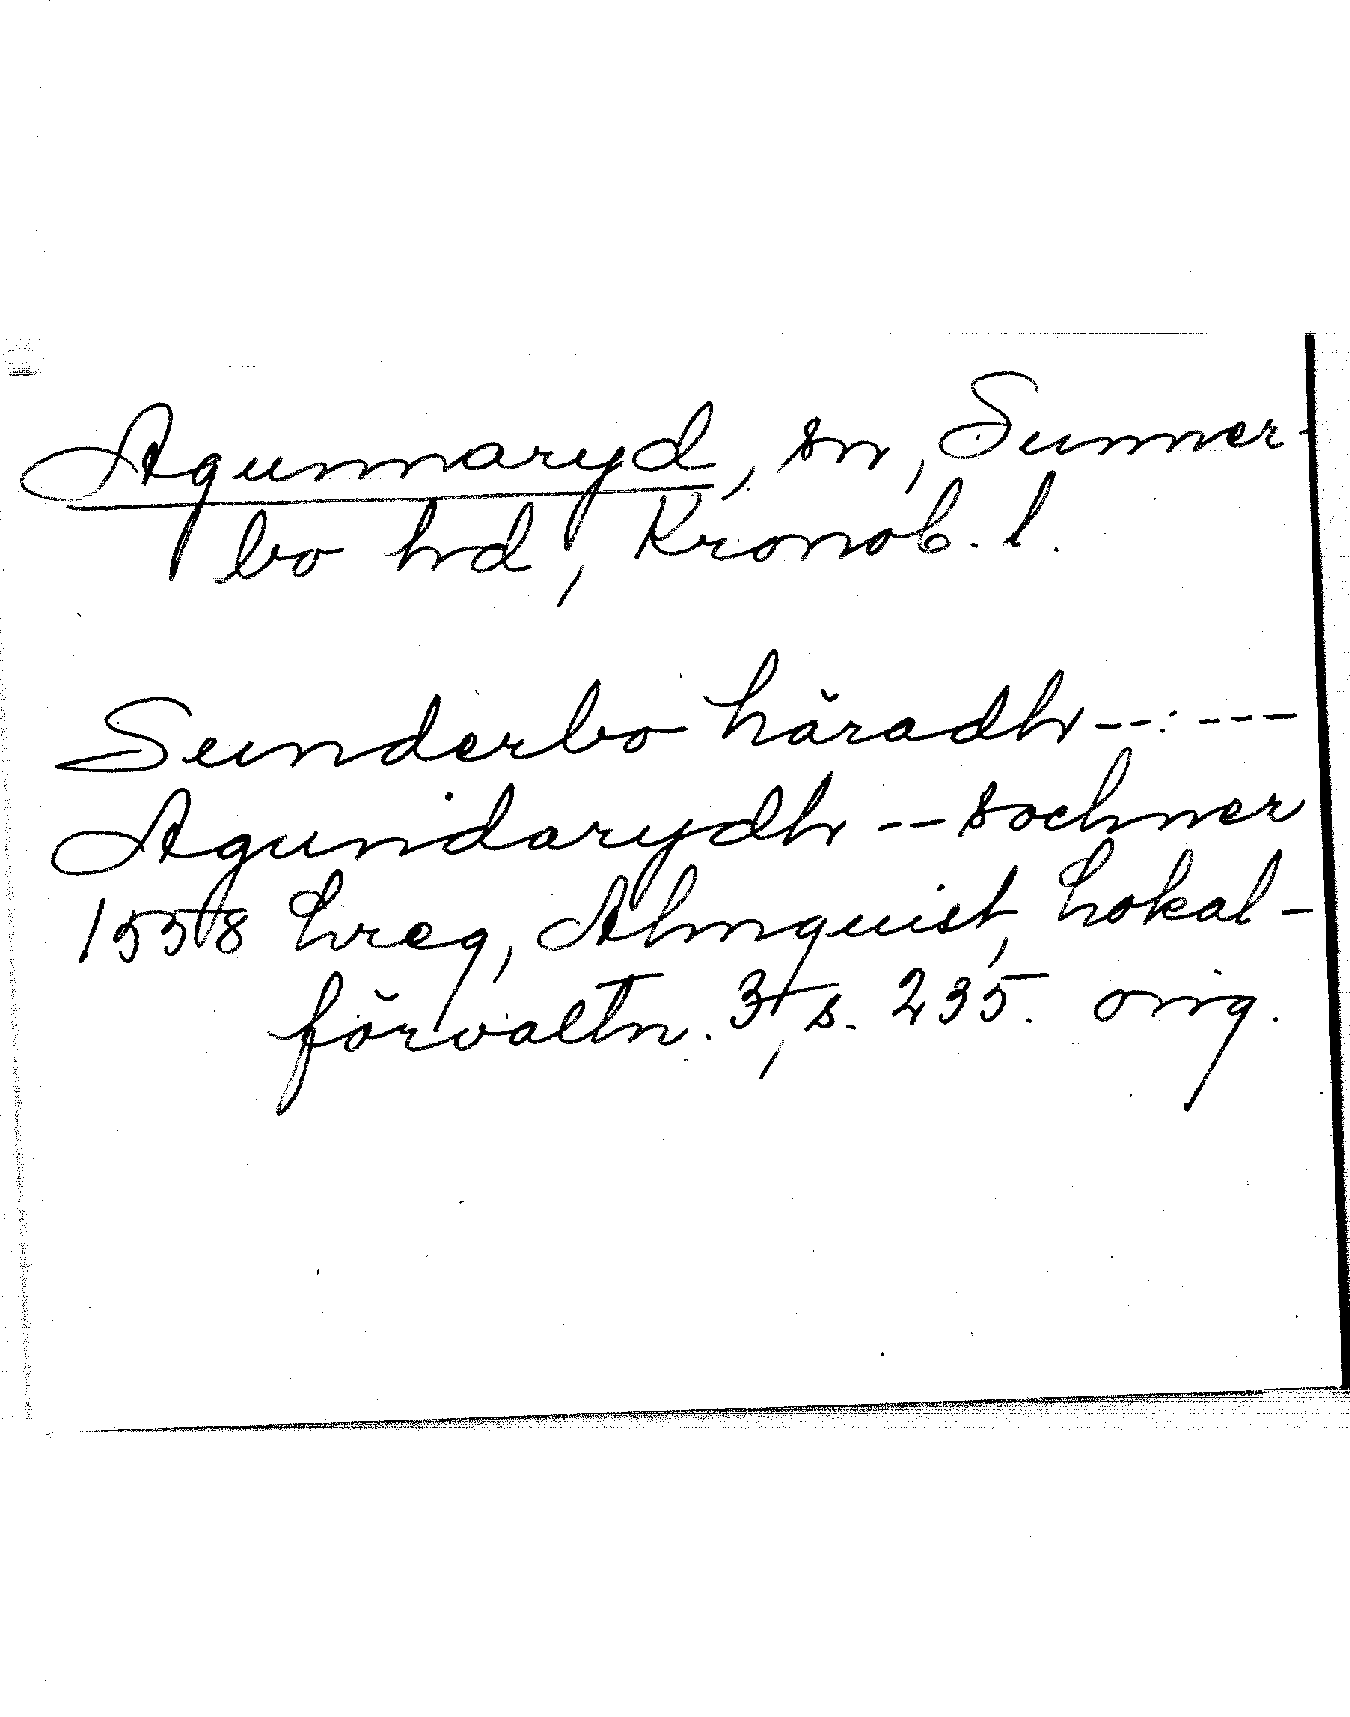 Agunnaryd, sn, Sunner-
bo hd, Kronob. l.
Sunderbo häradh --:---
Agundarydh -- sochner
1558 hreg, Almquist, Lokal-
förvaltn. 3, s. 235. orig.